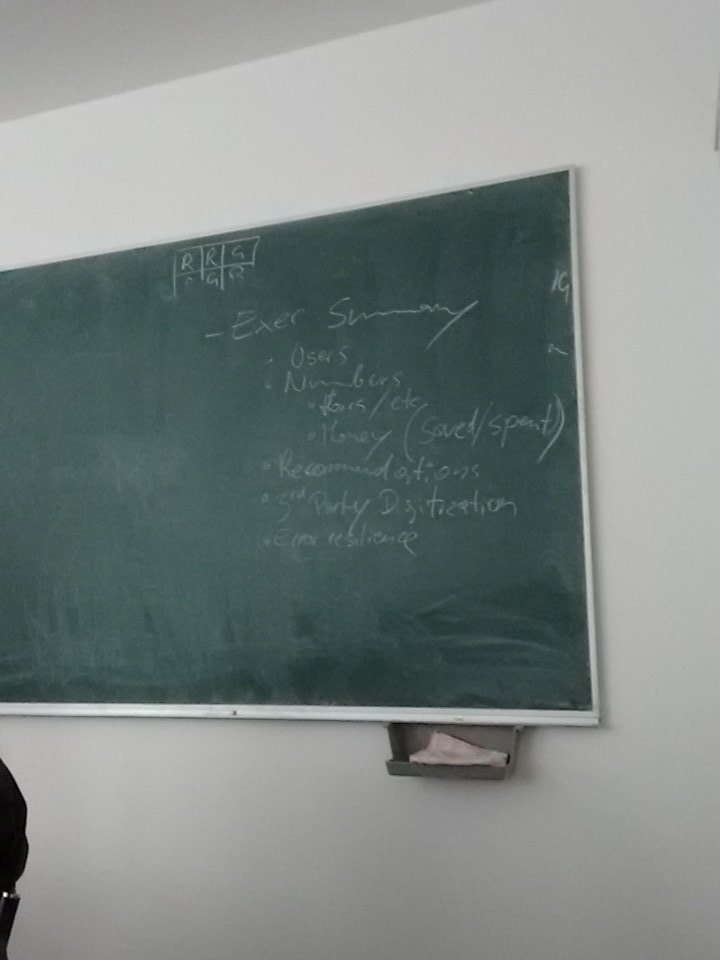 R R G
G R
- Exec Summary
• Users
• Numbers
• Hours/etc
• Money (saved/spent)
• Recommendations
• 3rd Party Digitization
• Error resilience